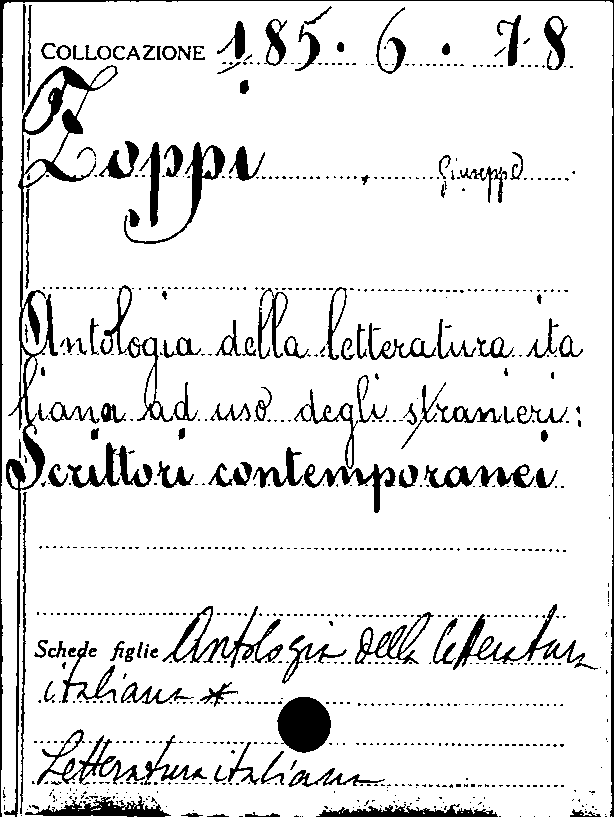 COLLOCAZIONE 185. 6. 78
Zoppi, Giuseppe
Antologia della letteratura ita
liana ad uso degli stranieri:
Scrittori contemporanei
Schede figlie Antologia della letteratura
italiana *
Letteratura italiana